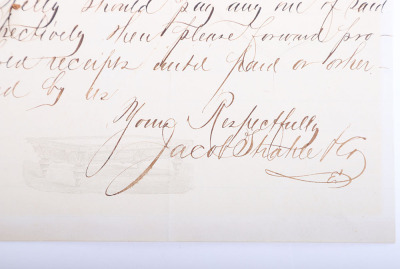 fully should pay any one of said
ectively then please forward pro-
receipts until paid or other-
d by us
Yours Respectfully
Jacob Strahle & Co